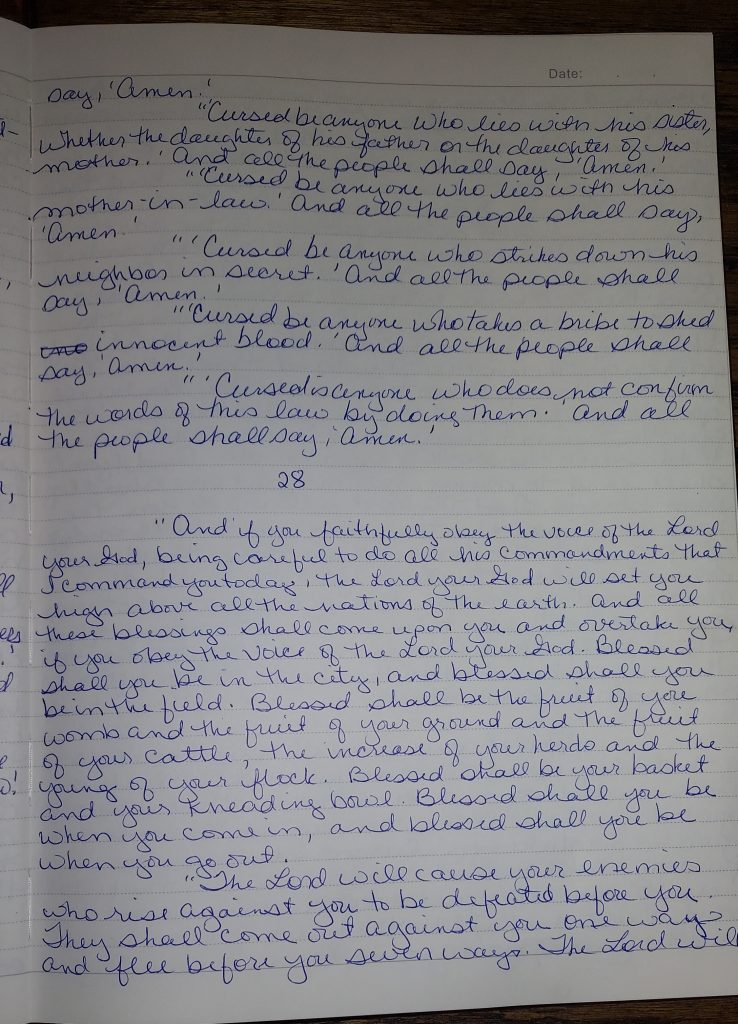 Date:
say, 'Amen.'
"'Cursed be anyone who lies with his sister,
whether the daughter of his father or the daughter of his
mother.' And all the people shall say, 'Amen.'
"'Cursed be anyone who lies with his
mother-in-law.' And all the people shall say,
'Amen.'
"'Cursed be anyone who strikes down his
neighbor in secret.' And all the people shall
say, 'Amen.'
"'Cursed be anyone who takes a bribe to shed
innocent blood.' And all the people shall
say, 'Amen.'
"'Cursed is anyone who does not confirm
the words of this law by doing them.' And all
the people shall say, 'Amen.'
28
"And if you faithfully obey the voice of the Lord
your God, being careful to do all his commandments that
I command you today, the Lord your God will set you
high above all the nations of the earth. And all
these blessings shall come upon you and overtake you,
if you obey the voice of the Lord your God. Blessed
shall you be in the city, and blessed shall you
be in the field. Blessed shall be the fruit of your
womb and the fruit of your ground and the fruit
of your cattle, the increase of your herds and the
young of your flock. Blessed shall be your basket
and your kneading bowl. Blessed shall you be
when you come in, and blessed shall you be
when you go out.
"The Lord will cause your enemies
who rise against you to be defeated before you.
They shall come out against you one way
and flee before you seven ways. The Lord will